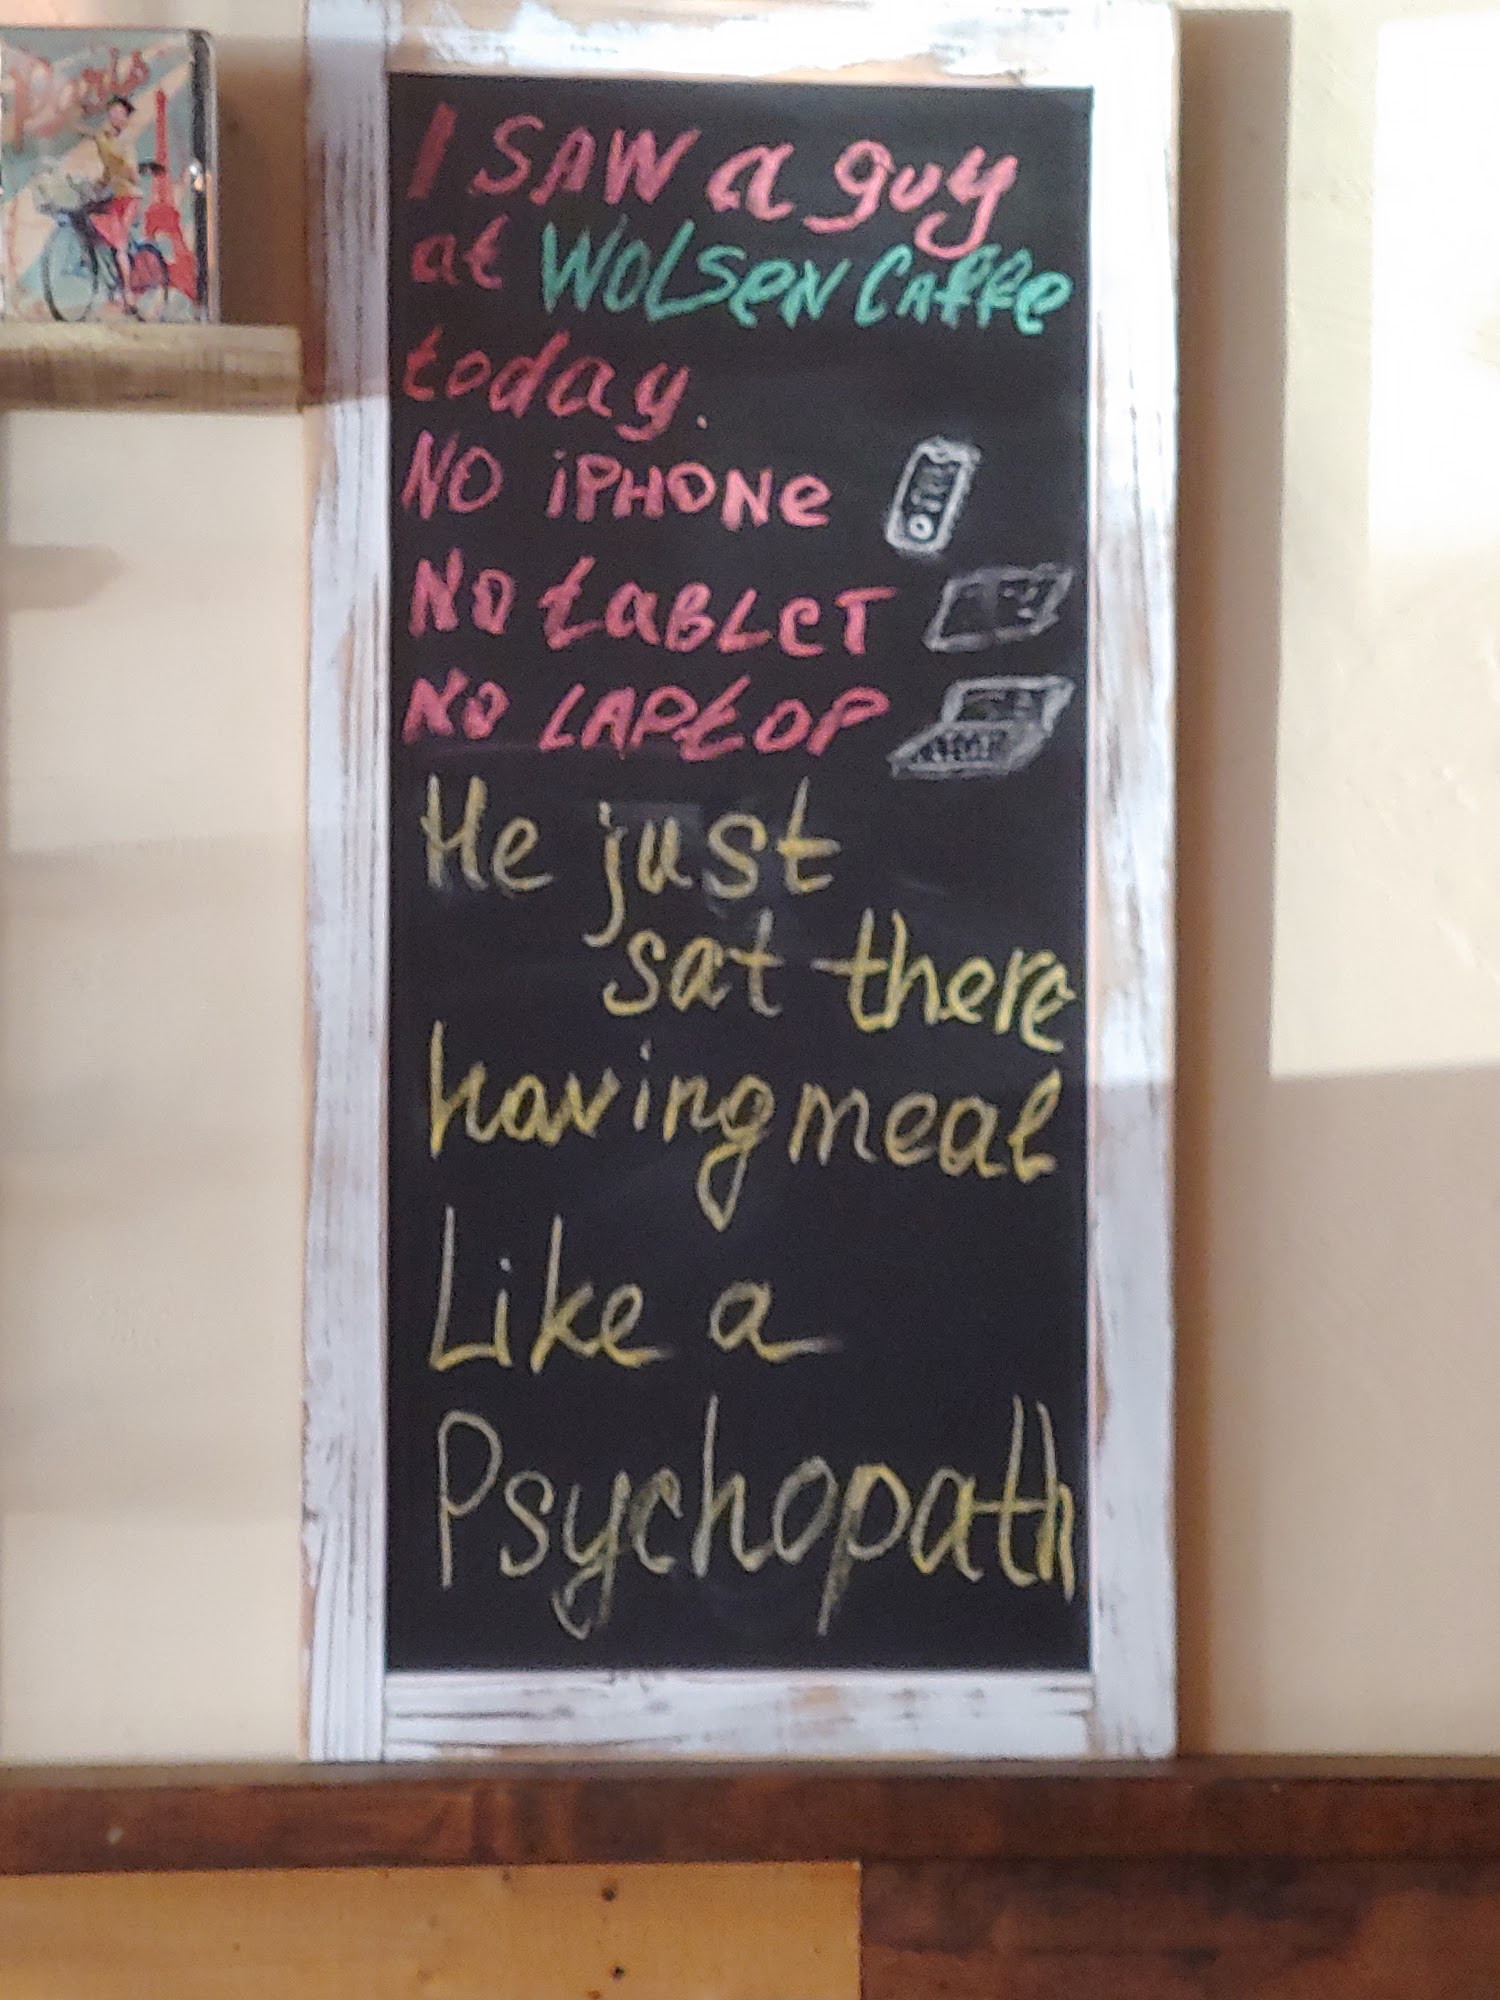 Paris
I SAW a guy
at WOLSEN CAFFE
today.
NO iPHONE
NO tABLET
NO LAPtOP
He just
sat there
having meal
Like a
Psychopath